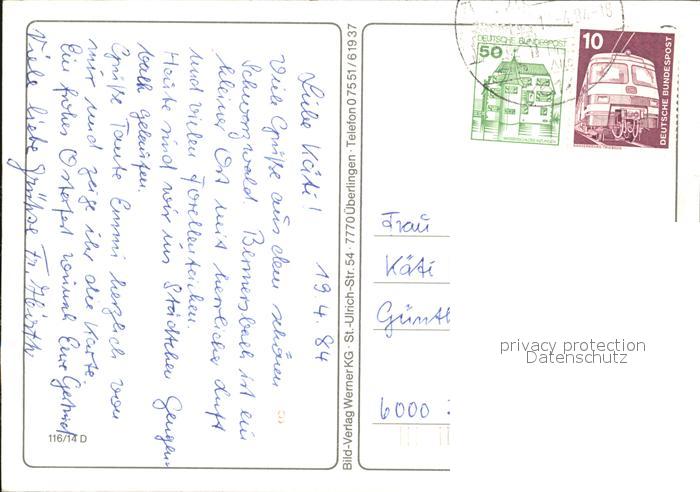 19.4.84
Liebe Käti!
Viele Grüße aus dem schönen
Schwarzwald. Bermersbach ist ein
kleiner Ort mit herrlicher Luft
und vielen Forellenteichen.
Heute sind wir ins Städtchen Gengen
bach gelaufen.
Grüße Tante Emmi herzlich von
mir und zeige ihr die Karte.
Ein frohes Osterfest wünscht Eure
Viele liebe Grüsse Fr.
116/14 D
Bild-Verlag Werner KG · St.-Ulrich-Str. 54 · 7770 Überlingen · Telefon 07551/61937
DEUTSCHE BUNDESPOST
50
10
DEUTSCHE BUNDESPOST
Frau
Käti
Günth
6000
privacy protection
Datenschutz